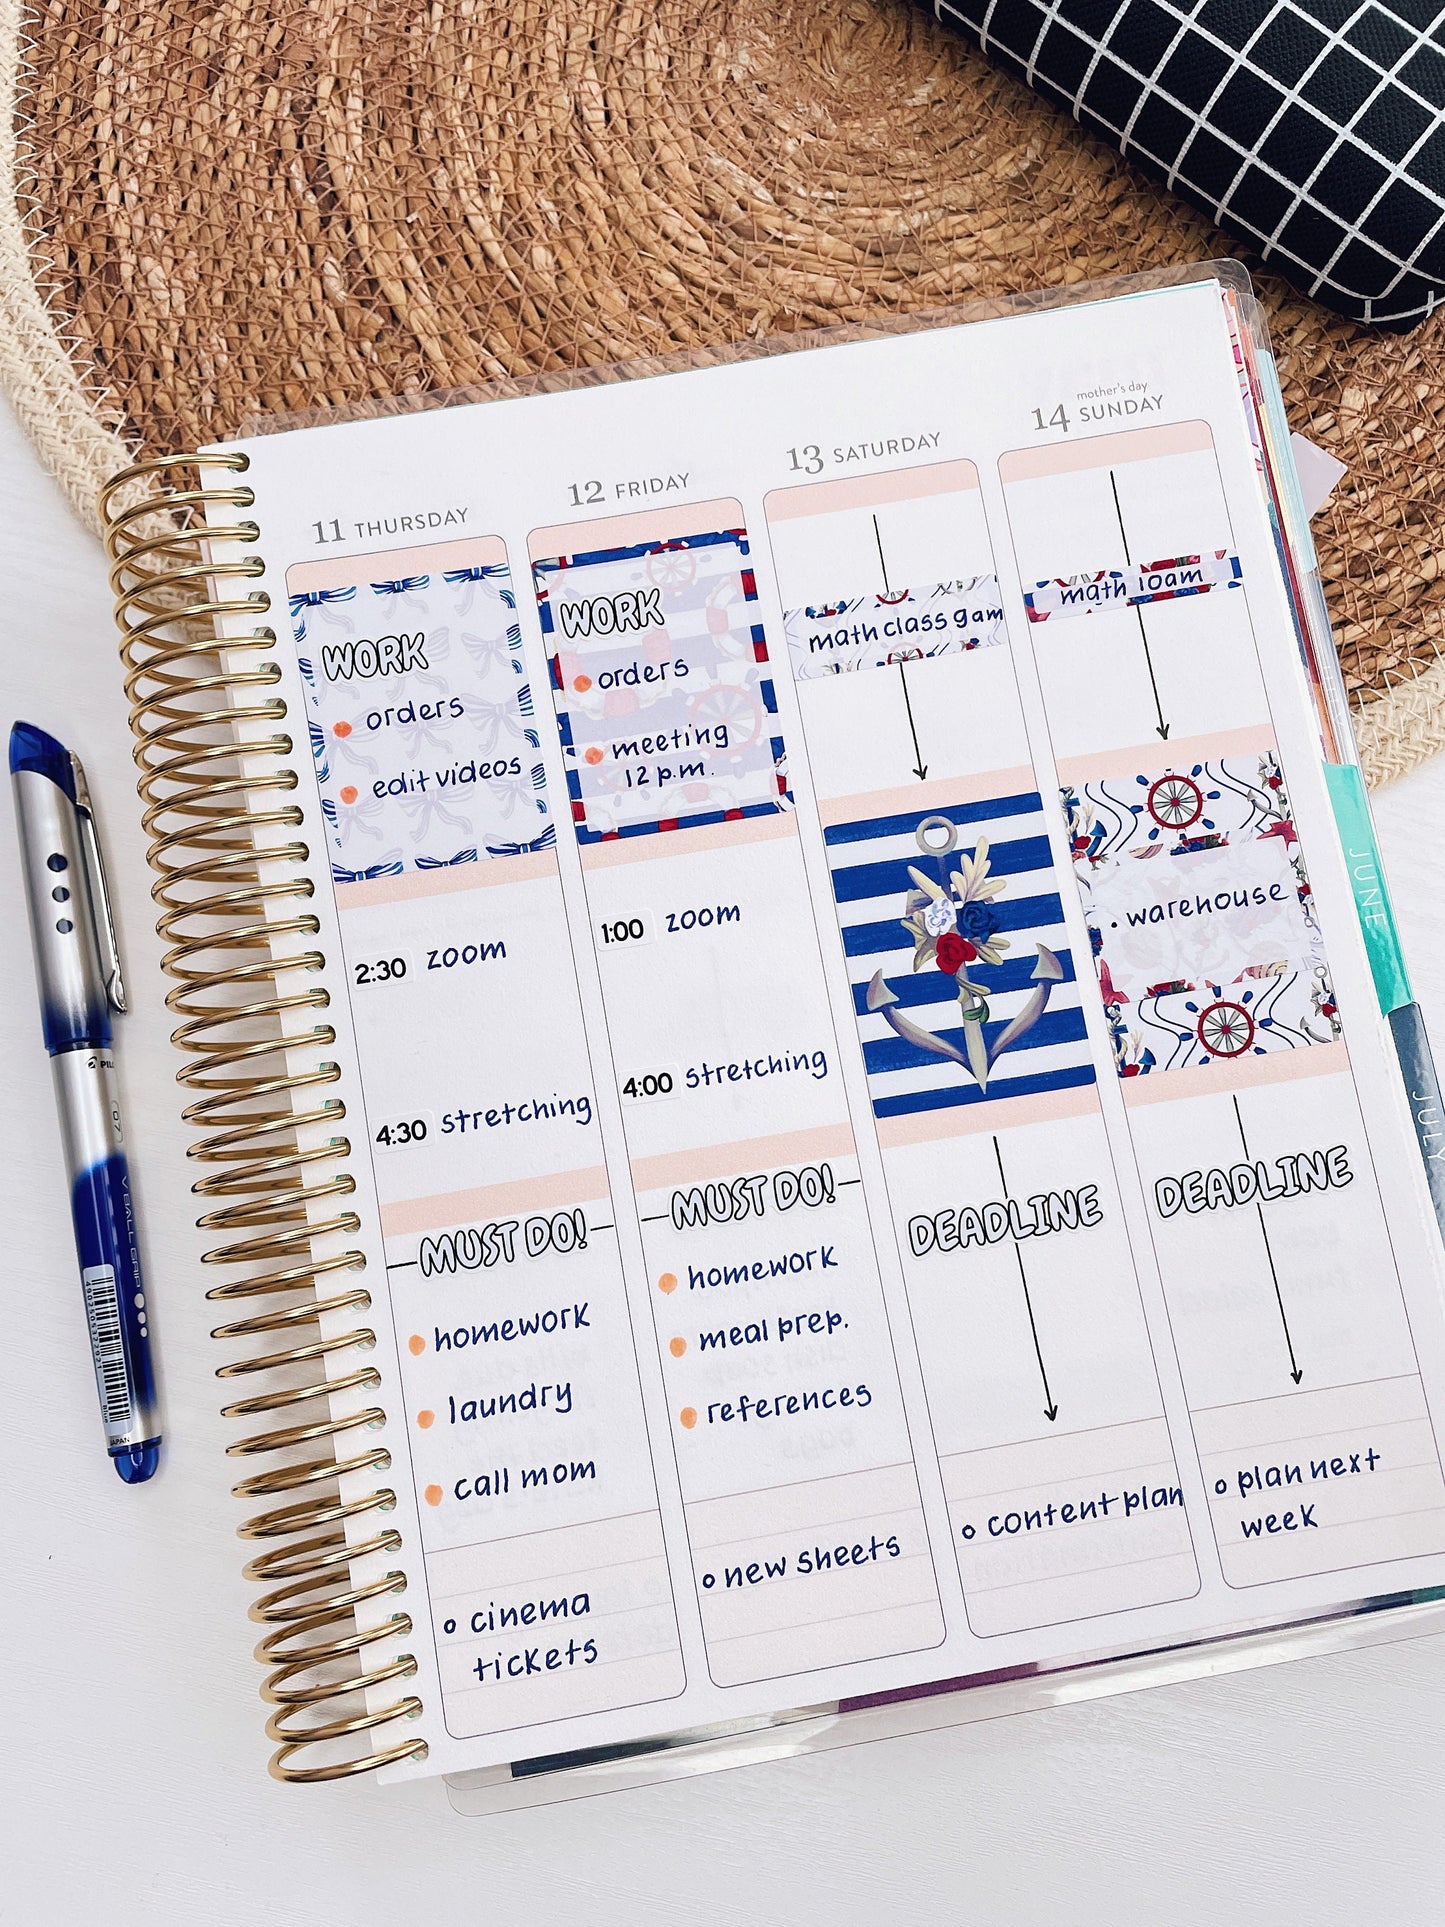 11 THURSDAY
WORK
orders
edit videos
2:30 zoom
4:30 stretching
MUST DO!
homework
laundry
call mom
cinema
tickets
12 FRIDAY
WORK
orders
meeting
12 p.m.
1:00 zoom
4:00 stretching
MUST DO!
homework
meal prep.
references
new sheets
13 SATURDAY
math class 9am
DEADLINE
content plan
mother's day
14 SUNDAY
math 10am
warehouse
DEADLINE
plan next
week
JUNE
JULY
07
V BALL GRIP
JAPAN